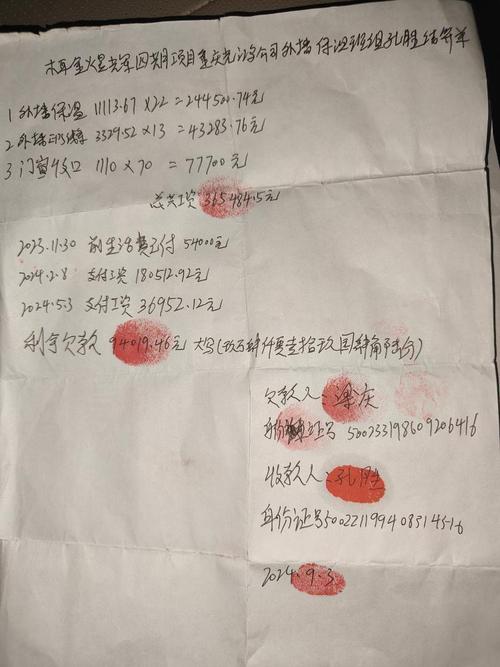 金火星四期项目重庆公司外墙保温班组孔胜结算单
1 外墙保温 11113.67×22=244500.74元
2 外墙 3329.52×13=43283.76元
3 门窗收口 1110×70=77700元
总共工资 365484.5元
2023.11.30 前生活费已付 54000元
2024.2.8 支付工资 180512.92元
2024.5.3 支付工资 36952.12元
剩余欠款 94019.46元 大写(玖万肆仟零壹拾玖圆肆角陆分)
欠款人:梁庆
身份证号 500233198609206416
收款人:孔胜
身份证号 500221199408314516
2024.9.3